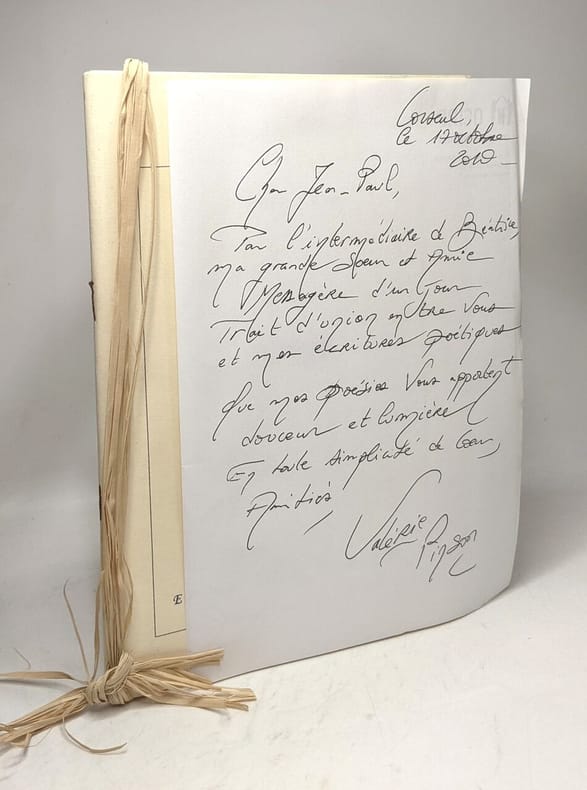 Corseul,
Ce 17 octobre
2010
Cher Jean-Paul,
Par l'intermédiaire de Béatrice,
ma grande Soeur et Amie
Messagère d'un Jour
Trait d'union entre Vous
et mes écritures poétiques
Que mes poésies Vous apportent
douceur et lumière
En toute simplicité de Coeur,
Amitiés,
Valérie Pinson
E